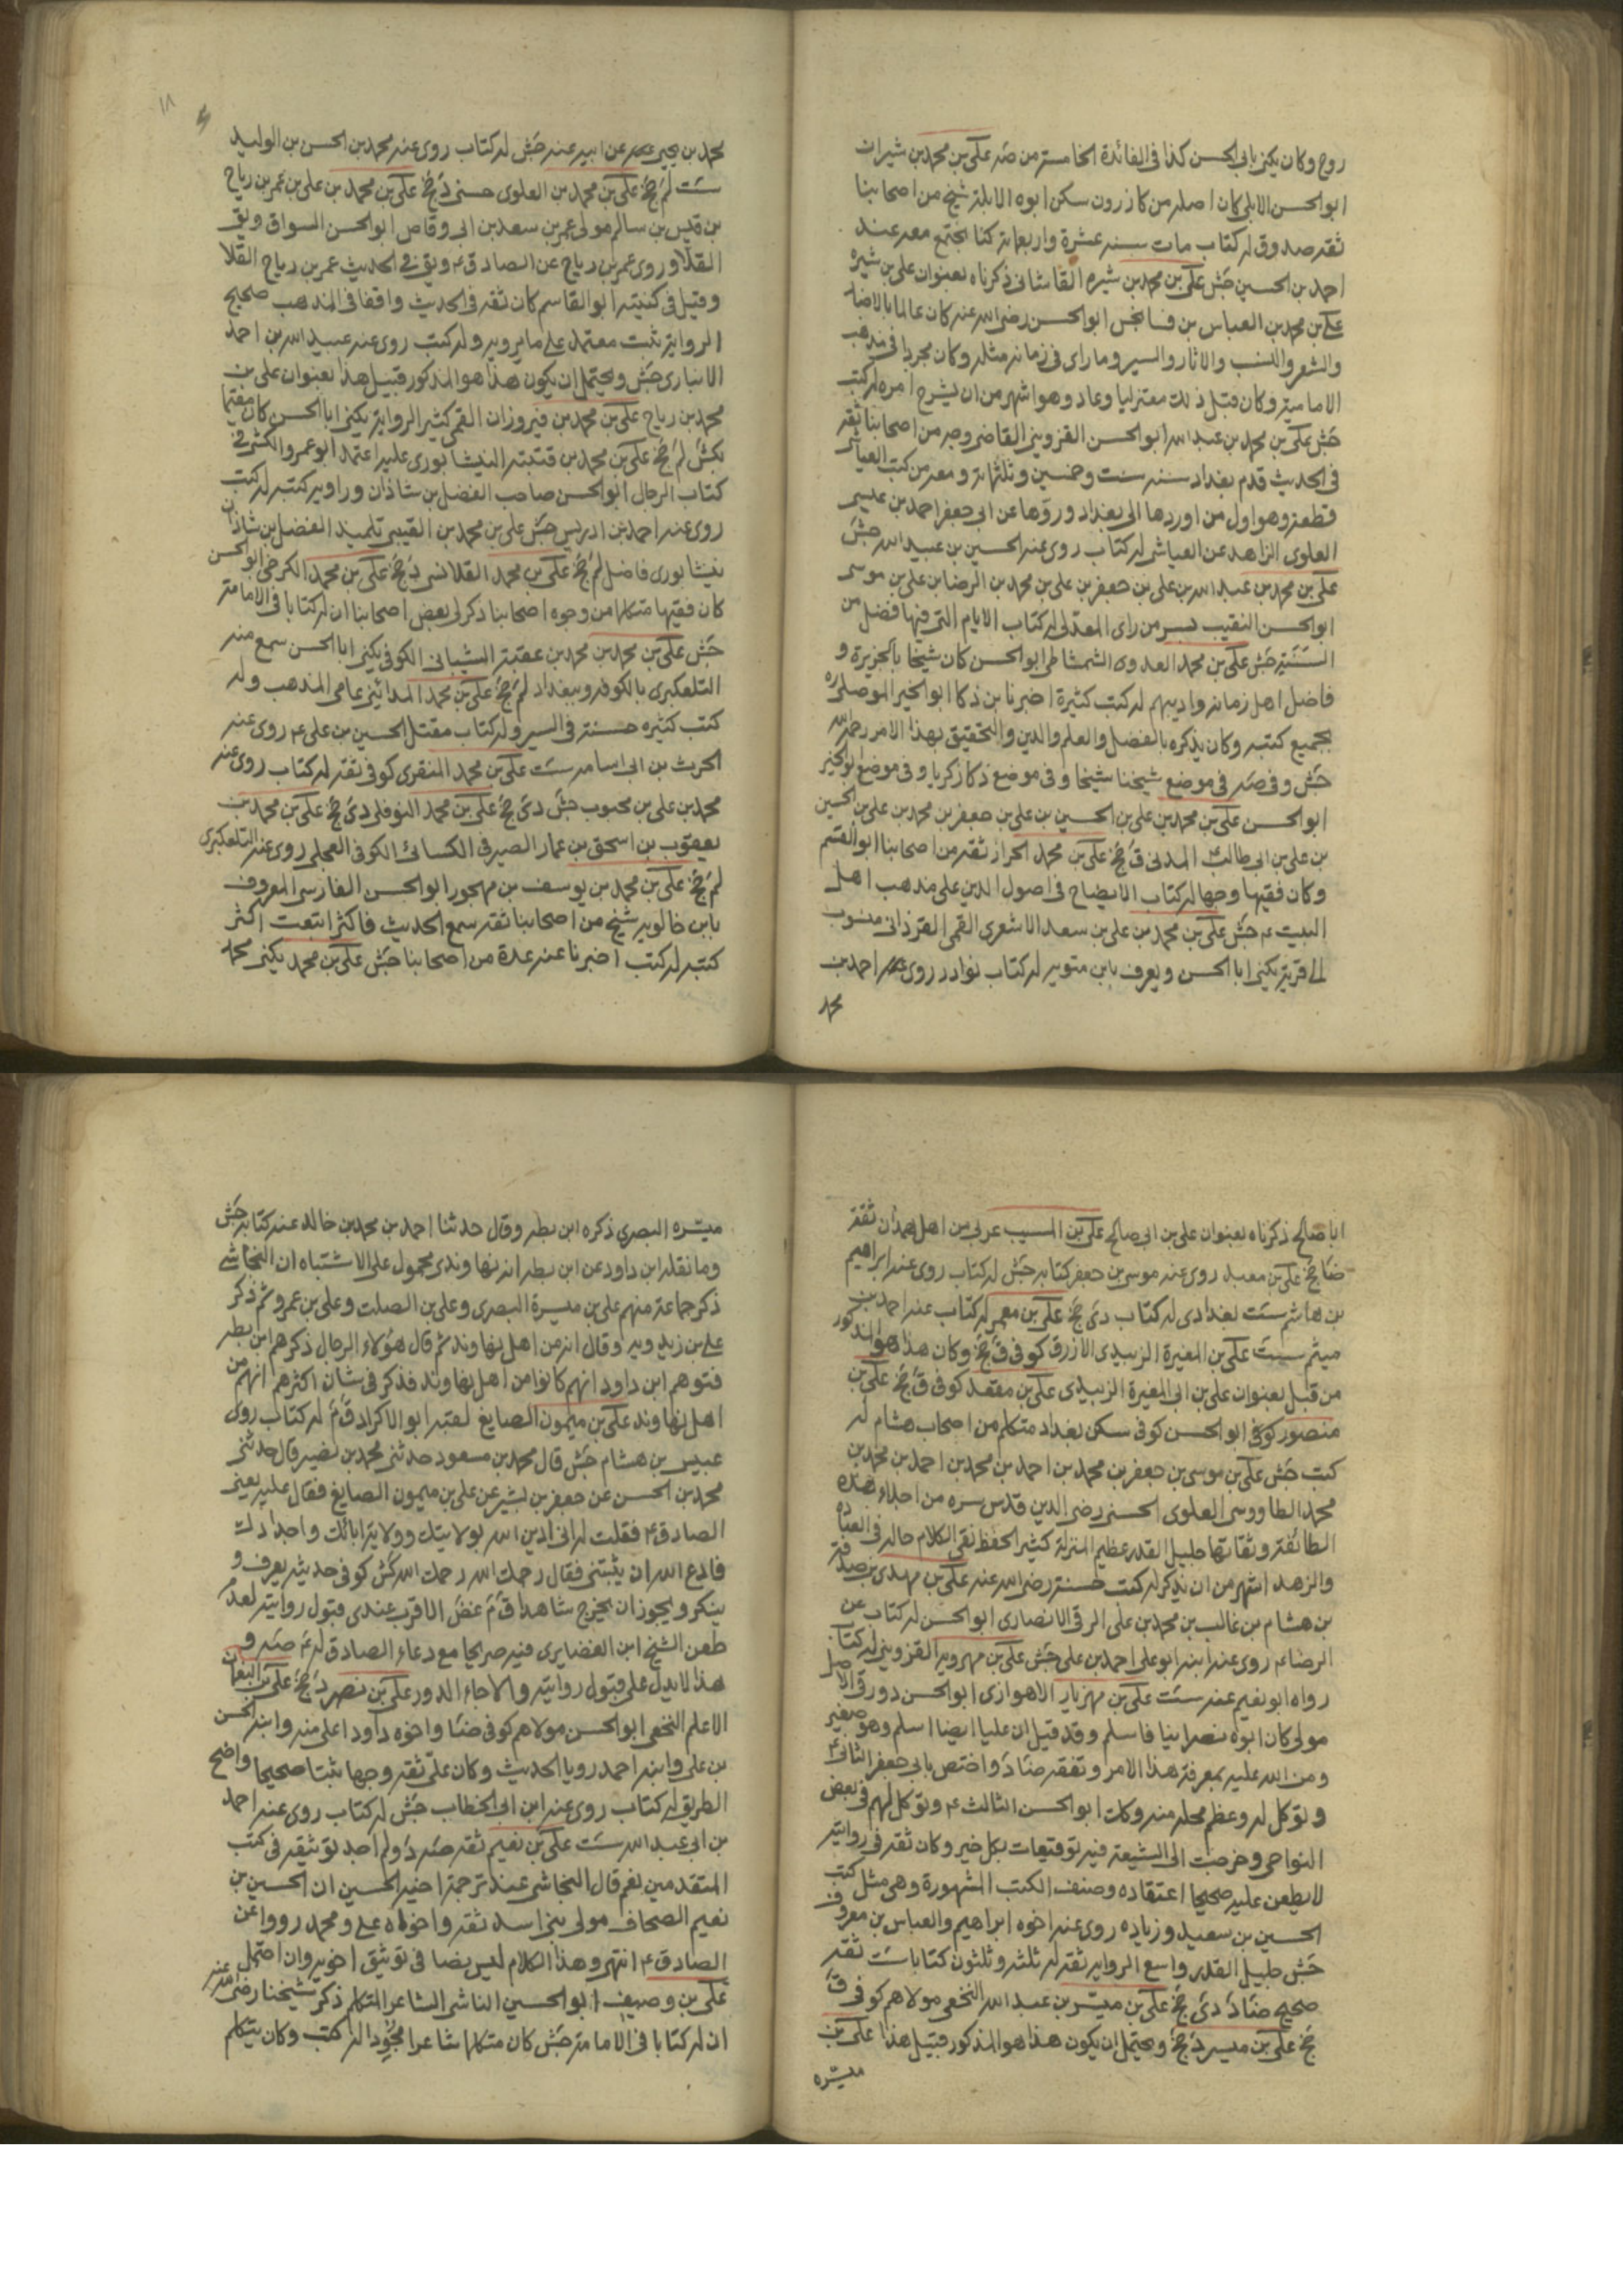 روح وكان يكنى بابى الحسن كذا فى الفائدة الخامسة من صه على بن محمد بن شيران
ابو الحسن الابلى كان اصله من كازرون سكن ابوه الابلة شيخ من اصحابنا
ثقة صدوق له كتاب مات سنة عشرة واربعمائة كنا نجتمع معه عند
احمد بن الحسين جش على بن محمد بن شيره القاشانى ذكرناه بعنوان على بن شيره
على بن محمد بن العباس بن فسانجس ابو الحسن رضى الله عنه كان عالما بالاخبار
والشعر والنسب والاثار والسير وما راى فى زمانه مثله وكان مجردا فى مذهب
الامامية وكان قبل ذلك معتزليا وعاد وهو اشهر من ان يشرح امره له كتب
جش على بن محمد بن عبد الله ابو الحسن القزوينى القاضى وجه من اصحابنا ثقة
فى الحديث قدم بغداد سنة ست وخمسين وثلثمائة ومعه من كتب العياشى
قطعة وهو اول من اوردها الى بغداد ورواها عن ابى جعفر احمد بن عيسى
العلوى الزاهد عن العياشى له كتاب روى عنه الحسين بن عبيد الله جش
على بن محمد بن عبد الله بن على بن جعفر بن على بن محمد بن الرضا بن على بن موسى
ابو الحسن النقيب بسر من راى المعدل له كتاب الايام التى فيها فضل من
السنة جش على بن محمد العدوى الشمشاطى ابو الحسن كان شيخا بالجزيرة و
فاضل اهل زمانه واديبهم له كتب كثيرة اخبرنا بن ذكا ابو الخير الموصلى ره
بجميع كتبه وكان يذكره بالفضل والعلم والدين والتحقيق بهذا الامر رحمه الله
جش وفى صه فى موضع شيخنا شيخا وفى موضع ذكا زكريا وفى موضع ابو الخير
ابو الحسن على بن محمد بن على بن الحسين بن على بن جعفر بن محمد بن على بن الحسين
بن على بن ابى طالب المدنى ق جخ على بن محمد الخراز ثقة من اصحابنا ابو القسم
وكان فقيها وجها له كتاب الايضاح فى اصول الدين على مذهب اهل
البيت ع جش على بن محمد بن على بن سعد الاشعرى القمى القزدانى منسوب
الى قرية يكنى ابا الحسن ويعرف بابن متويه له كتاب نوادر روى عنه احمد بن
محمد
١٨
محمد بن يحيى عن ابيه عنه جش له كتاب روى عنه محمد بن الحسن بن الوليد
ست لم جخ على بن محمد بن العلوى حسنى د جخ على بن محمد بن على بن عمر بن رباح
بن قيس بن سالم مولى عمر بن سعد بن ابى وقاص ابو الحسن السواق ويق
القلا وروى عمر بن رباح عن الصادق ع ويق فى الحديث عمر بن رباح القلا
وقيل فى كنيته ابو القاسم كان ثقة فى الحديث واقفا فى المذهب صحيح
الرواية ثبت معتمد على ما يرويه وله كتب روى عنه عبيد الله بن احمد
الانبارى جش ويحتمل ان يكون هذا هو المذكور قبيل هذا بعنوان على بن
محمد بن رباح على بن محمد بن فيروزان القمى كثير الرواية يكنى ابا الحسن كان مقيما
بكش لم جخ على بن محمد بن قتيبة النيشابورى عليه اعتمد ابو عمرو الكشى فى
كتاب الرجال ابو الحسن صاحب الفضل بن شاذان وراوية كتبه له كتب
روى عنه احمد بن ادريس جش على بن محمد بن القتيبى تلميذ الفضل بن شاذان
نيشابورى فاضل لم جخ على بن محمد القلانسى د جخ على بن محمد الكرخى ابو الحسن
كان فقيها متكلما من وجوه اصحابنا ذكر لى بعض اصحابنا ان له كتابا فى الامامة
جش على بن محمد بن محمد بن عقبة الشيبانى الكوفى يكنى ابا الحسن سمع منه
التلعكبرى بالكوفة وببغداد لم جخ على بن محمد المدائنى عامى المذهب وله
كتب كثيره حسنة فى السير وله كتاب مقتل الحسين بن على ع روى عنه
الحرث بن ابى اسامه ست على بن محمد المنقرى كوفى ثقة له كتاب روى عنه
محمد بن على بن محبوب جش دى جخ على بن محمد النوفلى دى جخ على بن محمد بن
يعقوب بن اسحق بن عمار الصيرفى الكسائى الكوفى العجلى روى عنه التلعكبرى
لم جخ على بن محمد بن يوسف بن مهجور ابو الحسن الفارسى المعروف
بابن خالويه شيخ من اصحابنا ثقة سمع الحديث فاكثر ابتعت اكثر
كتبه له كتب اخبرنا عنه عدة من اصحابنا جش على بن محمد يكنى محمد
ابا صالح ذكرناه بعنوان على بن ابى صالح على بن المسيب عربى من اهل همدان ثقة
ضا جخ على بن معبد روى عنه موسى بن جعفر كتابه جش له كتاب روى عنه ابراهيم
بن هاشم ست بغدادى له كتاب دى جخ على بن معمر له كتاب عنه احمد بن
ميثم ست على بن المغيرة الزبيدى الازرق كوفى ق جخ وكان هذا هو المذكور
من قبل بعنوان على بن ابى المغيرة الزبيدى على بن مقعد كوفى ق جخ على بن
منصور كوفى ابو الحسن كوفى سكن بغداد متكلم من اصحاب هشام له
كتب جش على بن موسى بن جعفر بن محمد بن احمد بن محمد بن احمد بن محمد بن
محمد الطاووسى العلوى الحسنى رضى الدين قدس سره من اجلاء هذه
الطائفة وثقاتها جليل القدر عظيم المنزلة كثير الحفظ نقى الكلام حاله فى العبادة
والزهد اشهر من ان يذكر له كتب حسنة رضى الله عنه على بن مهدى بن صدقة
بن هشام بن غالب بن محمد بن على الرقى الانصارى ابو الحسن له كتاب عن
الرضا ع روى عنه ابنه ابو على احمد بن على جش على بن مهرويه القزوينى له كتاب
رواه ابو نعيم عنه ست على بن مهزيار الاهوازى ابو الحسن دورقى الاصل
مولى كان ابوه نصرانيا فاسلم وقد قيل ان عليا ايضا اسلم وهو صغير
ومن الله عليه بمعرفة هذا الامر وتفقه ضا د واختص بابى جعفر الثانى ع
وتوكل له وعظم محله منه وكك ابو الحسن الثالث ع وتوكل لهم فى بعض
النواحى وخرجت الى الشيعة فيه توقيعات بكل خير وكان ثقة فى روايته
لا يطعن عليه صحيحا اعتقاده وصنف الكتب المشهورة وهى مثل كتب
الحسين بن سعيد وزياده روى عنه اخوه ابراهيم والعباس بن معروف
جش جليل القدر واسع الرواية ثقة له ثلثة وثلثون كتابا ست ثقة
صحيح ضا د دى جخ على بن ميسر بن عبد الله النخعى مولاهم كوفى ق
جخ على بن ميسر د جخ ويحتمل ان يكون هذا هو المذكور قبيل هذا على بن
ميسره
ميسره البصرى ذكره ابن بطه وقال حدثنا احمد بن محمد بن خالد عنه كتابه جش
وما نقله ابن داود عن ابن بطه انه نهاوندى محمول على الاشتباه ان النجاشى
ذكر جماعة منهم على بن ميسرة البصرى وعلى بن الصلت وعلى بن عمرو ثم ذكر
على بن زيدويه وقال انه من اهل نهاوند ثم قال هؤلاء الرجال ذكرهم ابن بطه
فتوهم ابن داود انهم كانوا من اهل نهاوند فذكر فى شان اكثرهم انهم من
اهل نهاوند على بن ميمون الصايغ لقبه ابو الاكراد ق م له كتاب روى
عبيس بن هشام جش قال محمد بن مسعود حدثنى محمد بن نصير قال حدثنى
محمد بن الحسن عن جعفر بن بشير عن على بن ميمون الصايغ فقال عليه يعنى
الصادق ع فقلت له انى ادين الله بولايتك وولاية ابائك واجدادك
فادع الله ان يثبتنى فقال رحمك الله رحمك الله كش كوفى حديثه يعرف و
ينكر ويجوز ان يخرج شاهدا ق م غض الاقرب عندى قبول روايته لعدم
طعن الشيخ ابن الغضايرى فيه صريحا مع دعاء الصادق له ع صه و
هذا لا يدل على قبول روايته والا جاء الدور على بن نصر د جخ على بن النعمان
الاعلم النخعى ابو الحسن مولاهم كوفى ضا واخوه داود اعلى منه وابنه الحسن
بن على وابنه احمد رويا الحديث وكان على ثقة وجها ثبتا صحيحا واضح
الطريق له كتاب روى عنه ابن ابى الخطاب جش له كتاب روى عنه احمد
بن ابى عبد الله ست على بن نعيم ثقة صه د ولم اجد توثيقه فى كتب
المتقدمين نعم قال النجاشى عند ترجمة اخيه الحسين ان الحسين بن
نعيم الصحاف مولى بنى اسد ثقة واخواه على ومحمد رووا عن
الصادق ع انتهى وهذا الكلام ليس بضا فى توثيق اخويه وان احتمل
على بن وصيف ابو الحسين الناشى الشاعر المتكلم ذكر شيخنا رضى الله عنه
ان له كتابا فى الامامة جش كان متكلما شاعرا مجودا له كتب وكان يتكلم